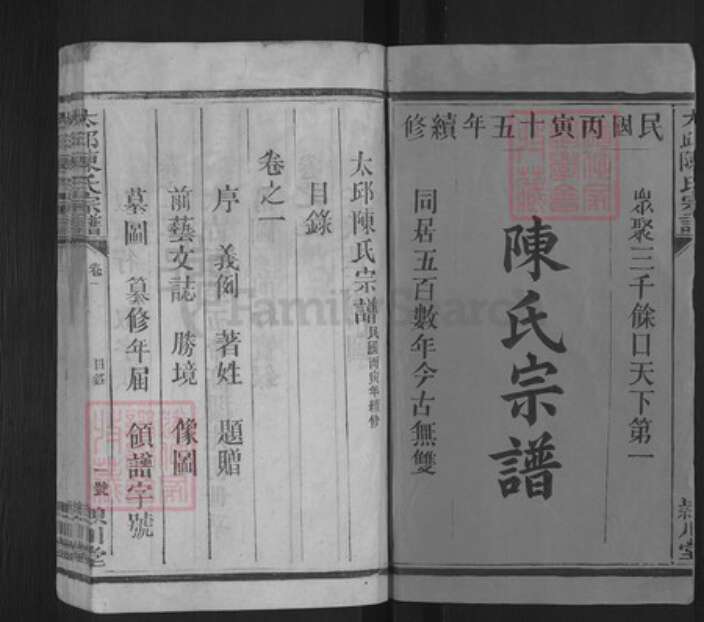 民國丙寅十五年續修
眾聚三千餘口天下第一
陳氏宗譜
同居五百數年今古無雙
太邱陳氏宗譜 民國丙寅年續修
目錄
卷之一
序 義例 著姓 題贈
前藝文誌 勝境 像圖
墓圖 纂修年届 領譜字號
太邱陳氏宗譜
卷一
目錄
一號
FamilySearch